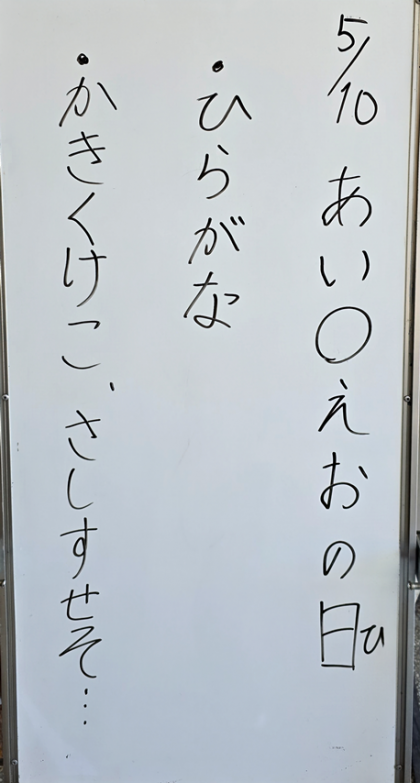 5/10 あい○えおの日ひ
・ひらがな
・かきくけこ、さしすせそ…